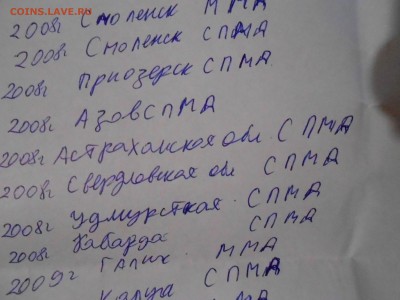 COINS.LAVE.RU
2008г Смоленск ММД
2008г Смоленск СПМД
2008г Приозерск СПМД
2008г Азов СПМД
2008г Астраханская обл. СПМД
2008г Свердловская обл СПМД
2008г Удмурсткая. СПМД
2008г Кабарда СПМД
2009г Галич ММД
Калуга СПМД